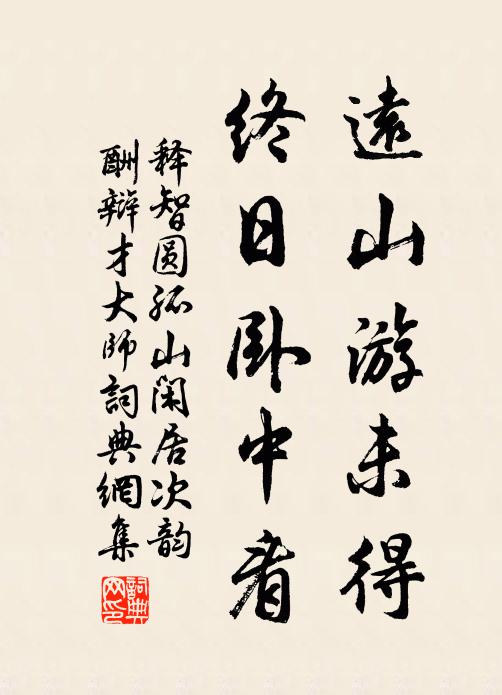 遠山游未得
終日卧中看
释智圆孤山闲居次韵
酬辩才大师詞典網集
詞典網印